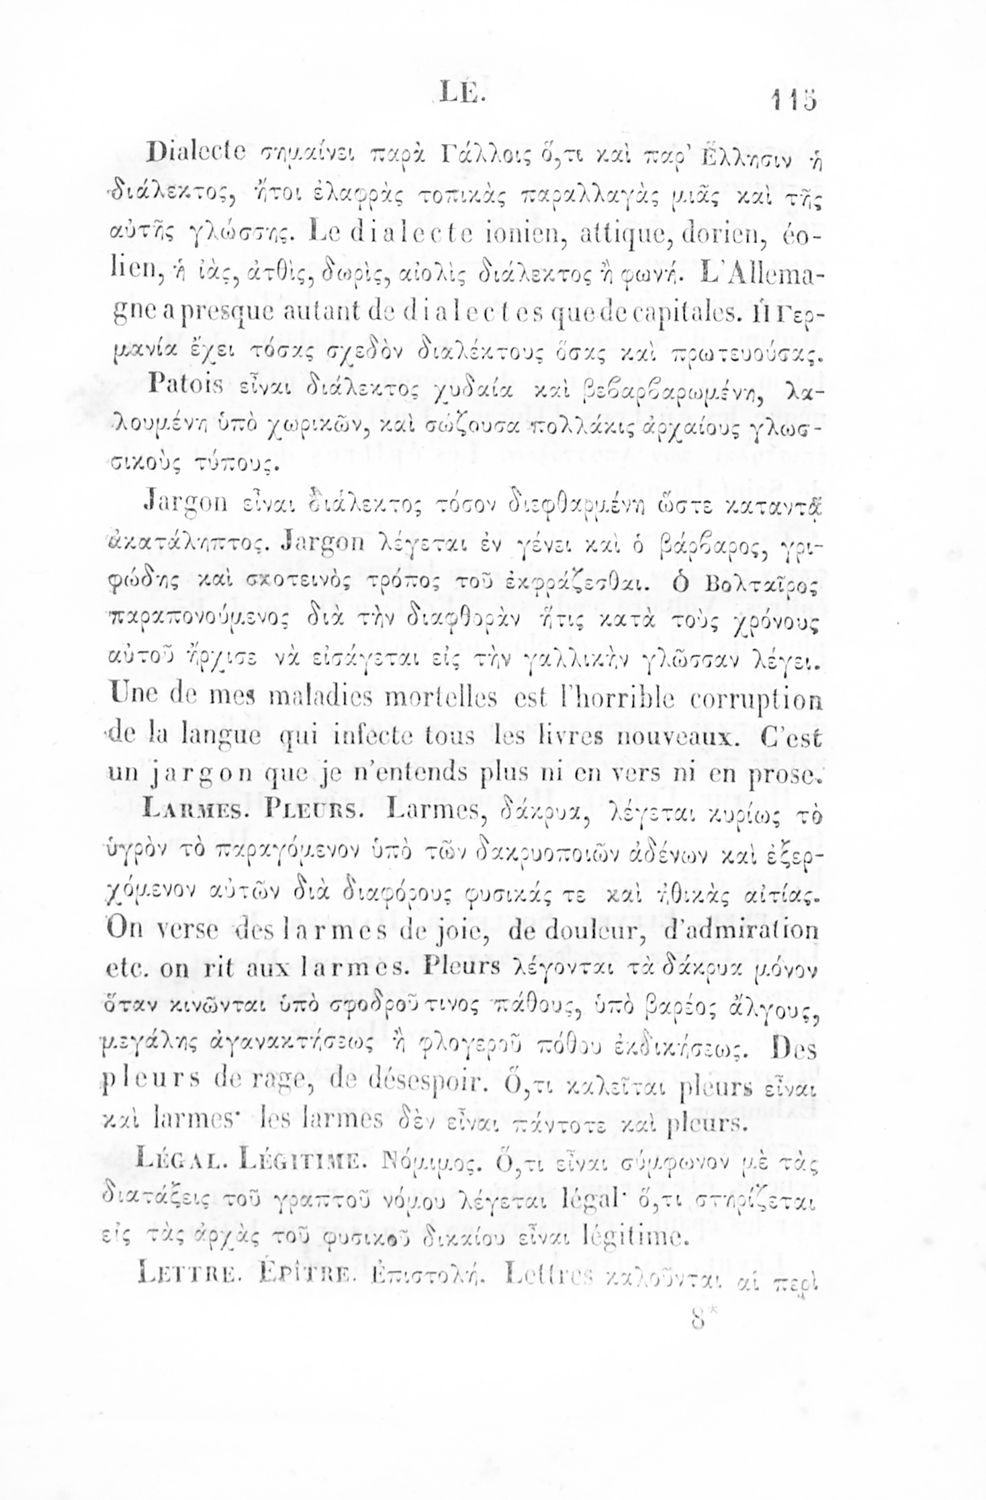 LÉ.
115
Dialecte σημαίνει παρὰ Γάλλοις ὅ,τι καὶ παρ' Ἕλλησιν ἡ
διάλεκτος, ἤτοι ἐλαφρὰς τοπικὰς παραλλαγὰς μιᾶς καὶ τῆς
αὐτῆς γλώσσης. Le dialecte ionien, attique, dorien, éo-
lien, ἡ ἰὰς, ἀτθὶς, δωρὶς, αἰολὶς διάλεκτος ἢ φωνή. L'Allema-
gne a presque autant de dialectes que de capitales. Ἡ Γερ-
μανία ἔχει τόσας σχεδὸν διαλέκτους ὅσας καὶ πρωτευούσας.
Patois εἶναι διάλεκτος χυδαία καὶ βεβαρβαρωμένη, λα-
λουμένη ὑπὸ χωρικῶν, καὶ σώζουσα πολλάκις ἀρχαίους γλωσ-
σικοὺς τύπους.
Jargon εἶναι διάλεκτος τόσον διεφθαρμένη ὥστε καταντᾷ
ἀκατάληπτος. Jargon λέγεται ἐν γένει καὶ ὁ βάρβαρος, γρι-
φώδης καὶ σκοτεινὸς τρόπος τοῦ ἐκφράζεσθαι. Ὁ Βολταῖρος
παραπονούμενος διὰ τὴν διαφθορὰν ἥτις κατὰ τοὺς χρόνους
αὐτοῦ ἤρχισε νὰ εἰσάγεται εἰς τὴν γαλλικὴν γλῶσσαν λέγει.
Une de mes maladies mortelles est l'horrible corruption
de la langue qui infecte tous les livres nouveaux. C'est
un jargon que je n'entends plus ni en vers ni en prose.
LARMES. PLEURS. Larmes, δάκρυα, λέγεται κυρίως τὸ
ὑγρὸν τὸ παραγόμενον ὑπὸ τῶν δακρυοποιῶν ἀδένων καὶ ἐξερ-
χόμενον αὐτῶν διὰ διαφόρους φυσικάς τε καὶ ἠθικὰς αἰτίας.
On verse des larmes de joie, de douleur, d'admiration
etc. on rit aux larmes. Pleurs λέγονται τὰ δάκρυα μόνον
ὅταν κινῶνται ὑπὸ σφοδροῦ τινος πάθους, ὑπὸ βαρέος ἄλγους,
μεγάλης ἀγανακτήσεως ἢ φλογεροῦ πόθου ἐκδικήσεως. Des
pleurs de rage, de désespoir. Ὅ,τι καλεῖται pleurs εἶναι
καὶ larmes· les larmes δὲν εἶναι πάντοτε καὶ pleurs.
LÉGAL. LÉGITIME. Νόμιμος. Ὅ,τι εἶναι σύμφωνον μὲ τὰς
διατάξεις τοῦ γραπτοῦ νόμου λέγεται légal· ὅ,τι στηρίζεται
εἰς τὰς ἀρχὰς τοῦ φυσικοῦ δικαίου εἶναι légitime.
LETTRE. ÉPÎTRE. Ἐπιστολή. Lettres καλοῦνται αἱ περὶ
8*